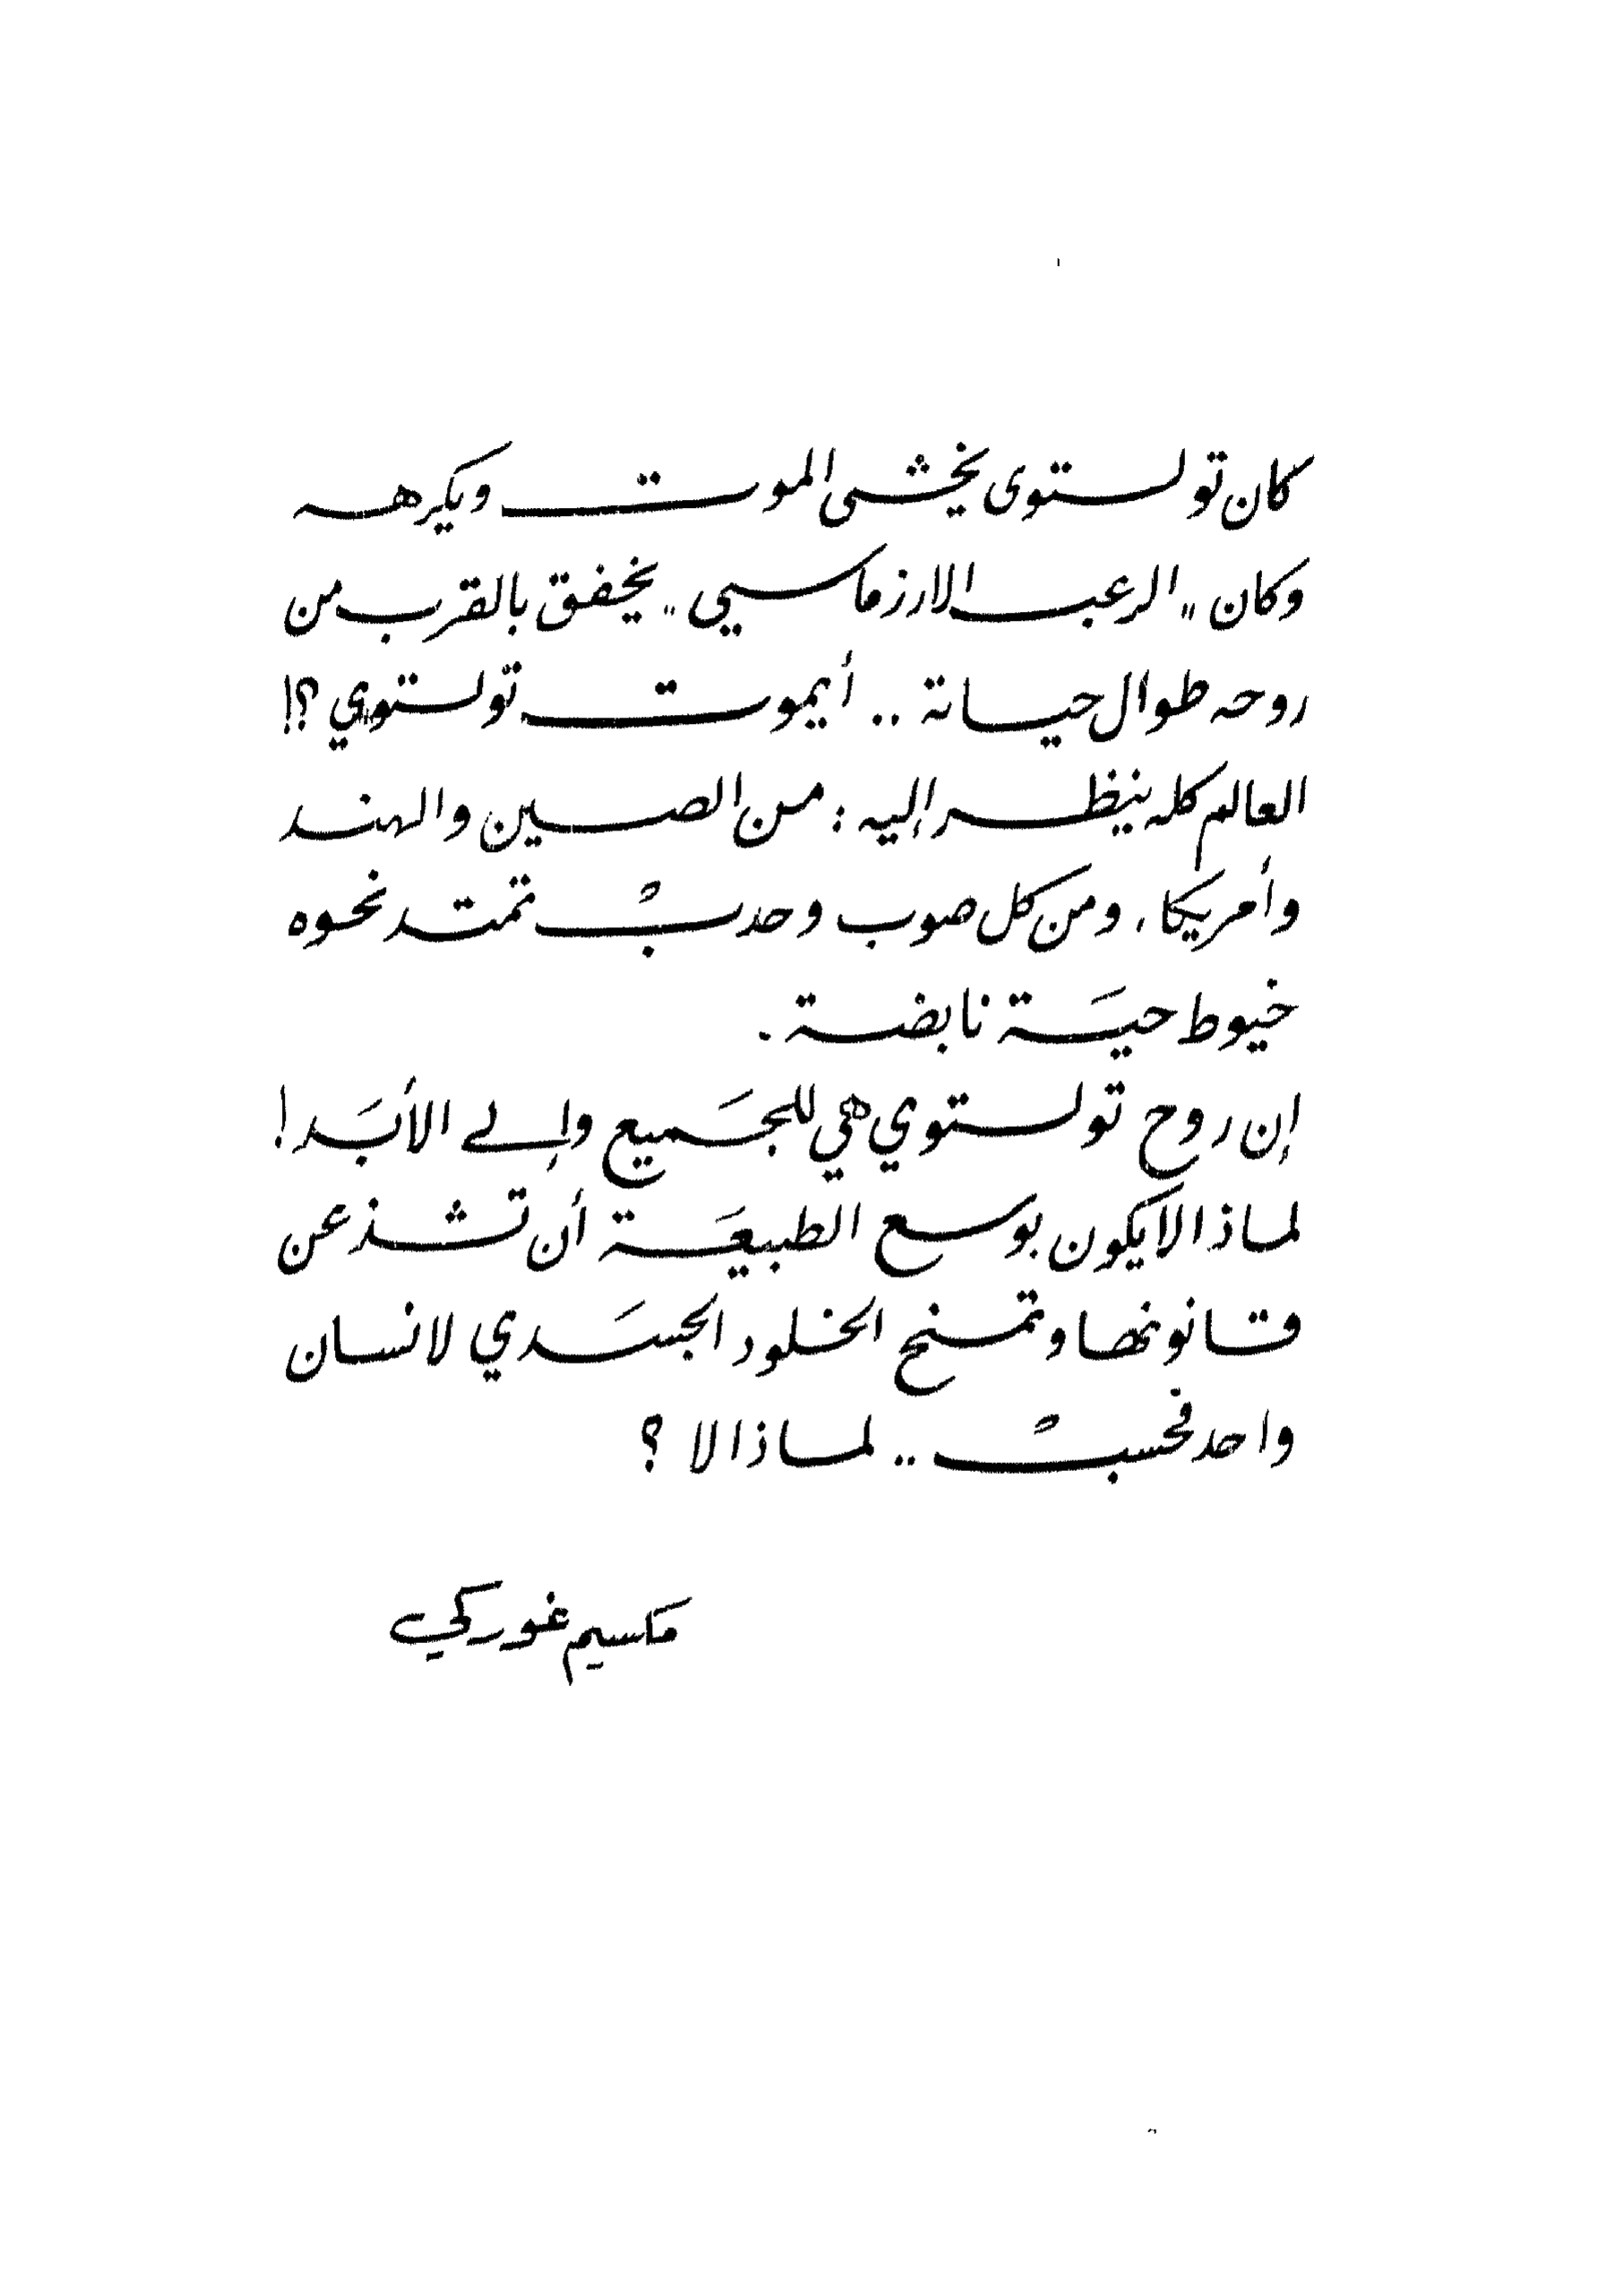 كان تولستوى يخشى الموت ويكرهه
وكان "الرعب الارزماسيي" يخفق بالقرب من
روحه طوال حياتة .. أيموت تولستوي ؟!
العالم كله ينظر إليه : من الصين والهند
وأمريكا، ومن كل صوب وحدبْ تمتد نحوه
خيوط حيَة نابضة .
إن روح تولستوي هي للجَميع وإلى الأبَد !
لماذا لايكون بوسع الطبيعَة أن تشذ عن
قانونها وتمنح الخلود الجسَدي لانسان
واحد فحسبْ .. لماذا لا ؟
مكسيم غوركي